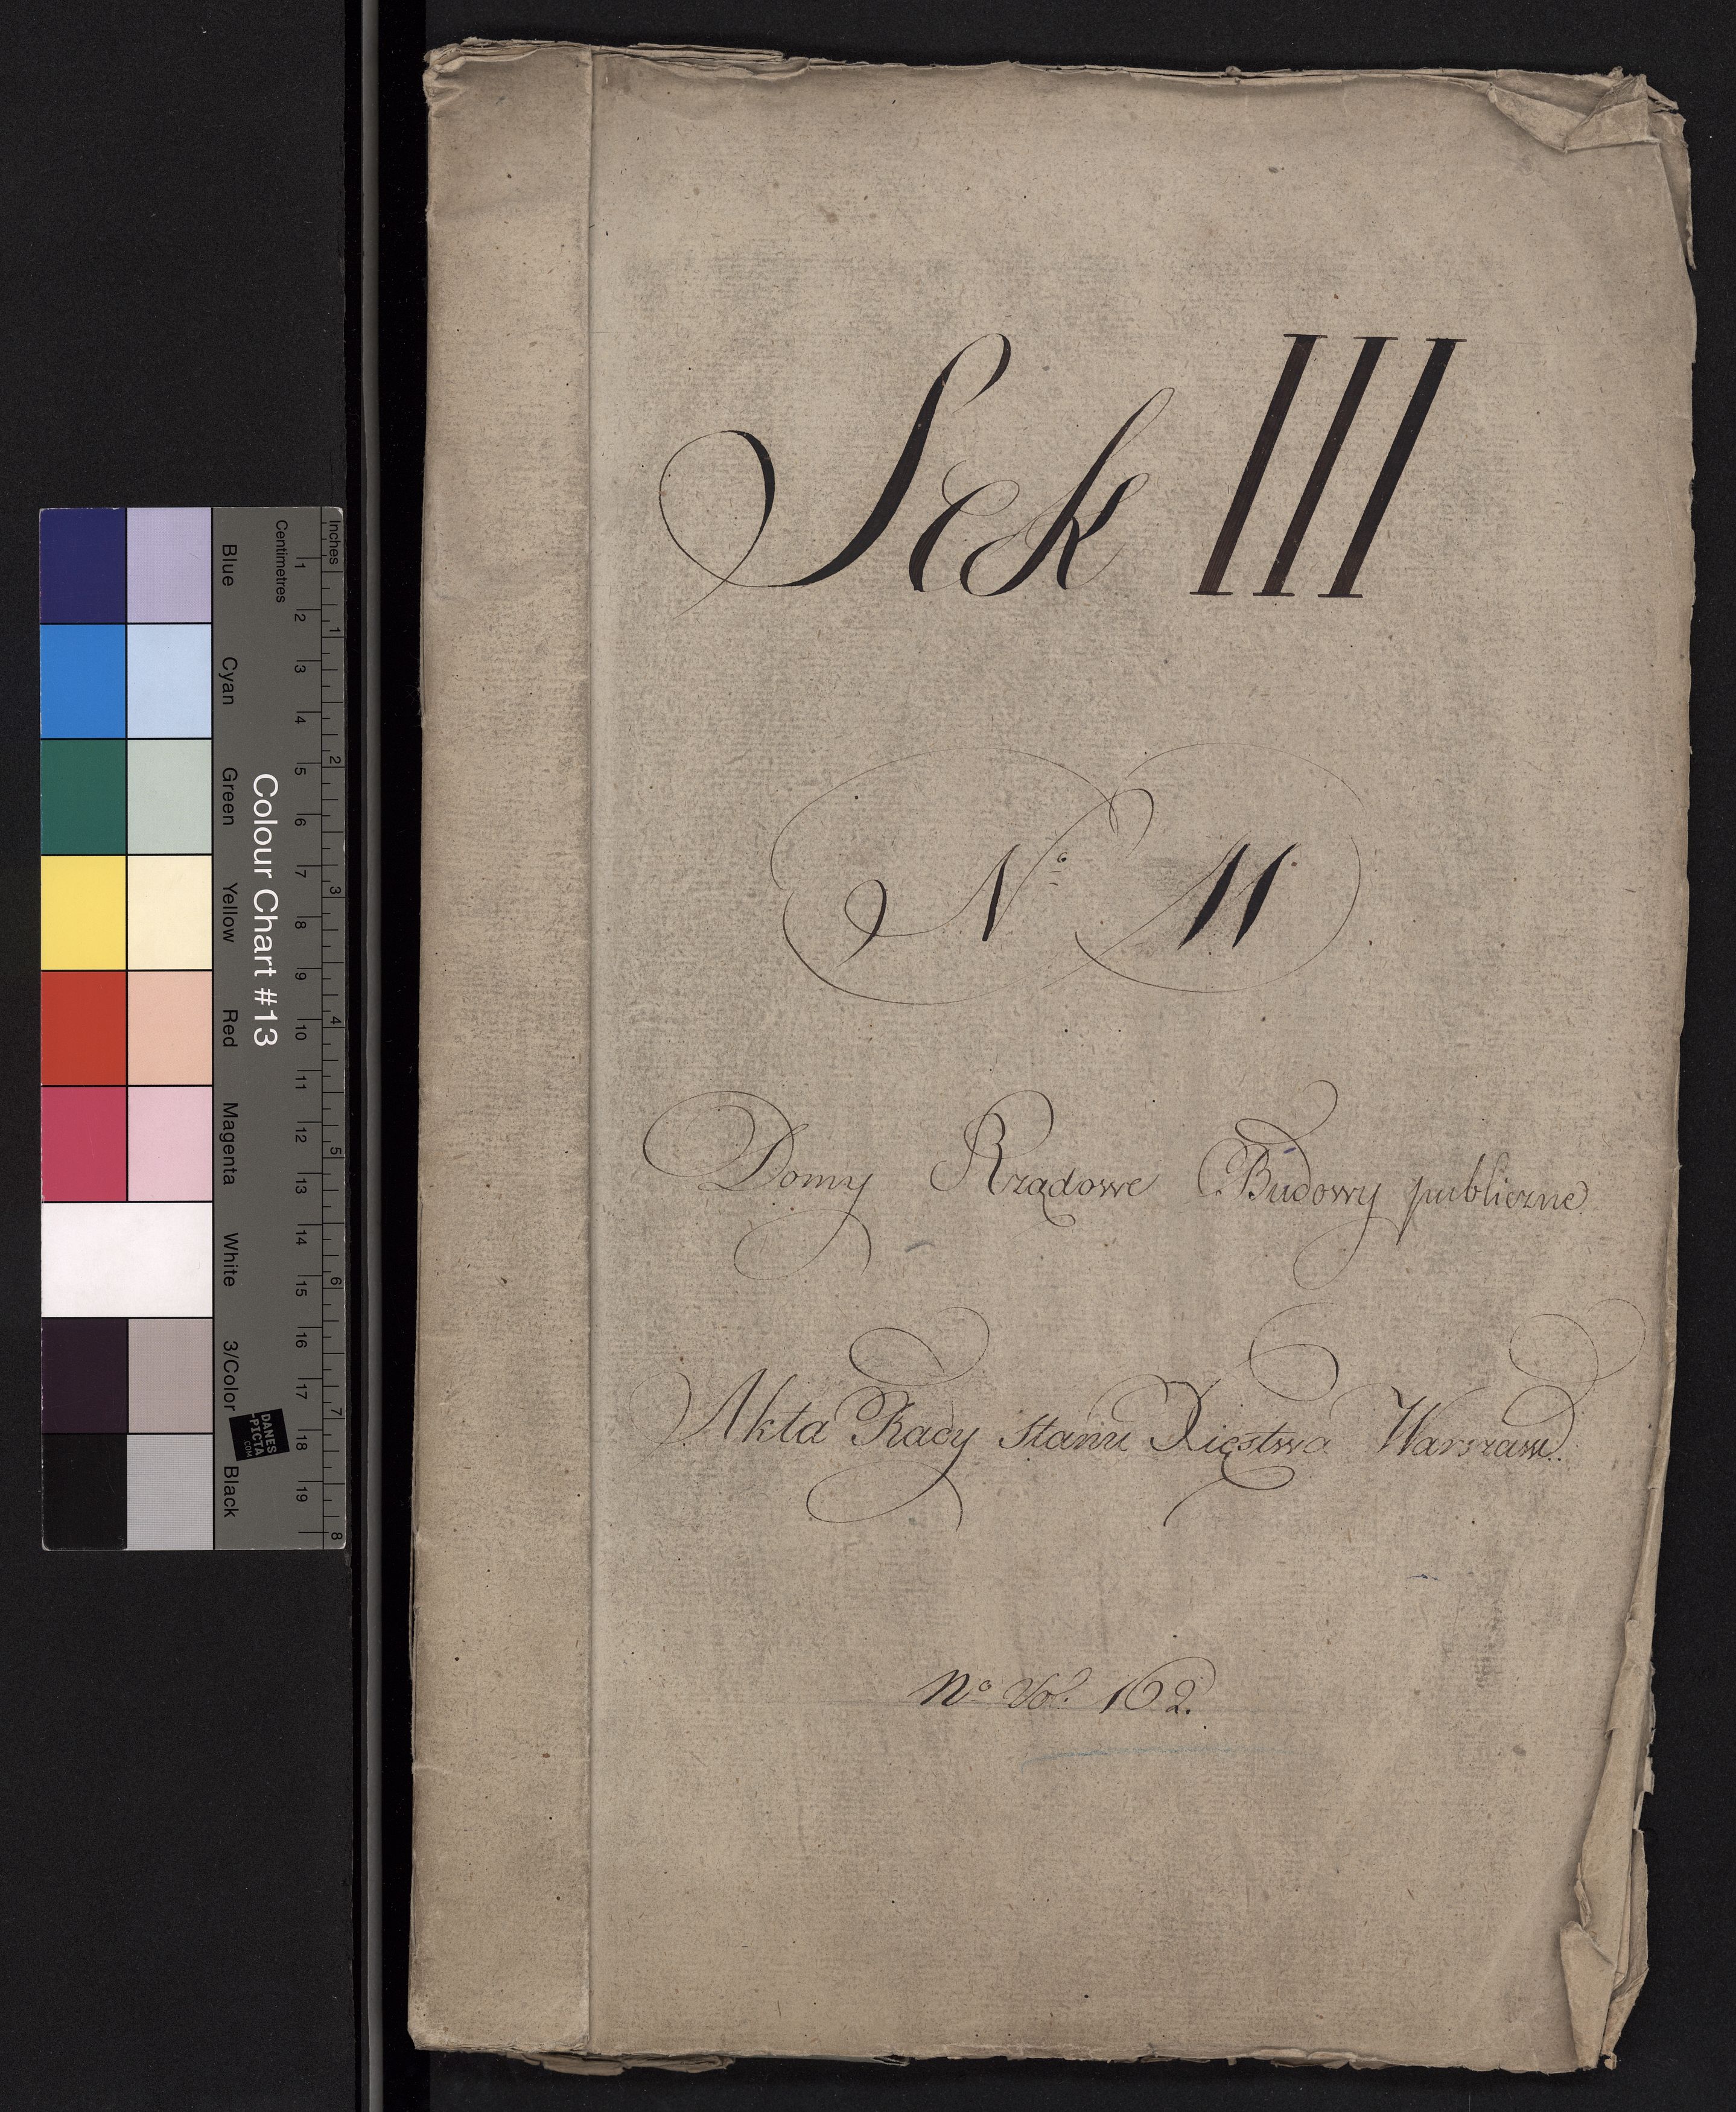 Sek III
No 11
Domy Rządowe Budowy publiczne
Akta Rady stanu Xięstwa Warszaw.
No Vol. 162.
Inches
Centimetres
1 2 3 4 5 6 7 8 9 10 11 12 13 14 15 16 17 18 19
1 2 3 4 5 6 7 8
Colour Chart #13
Blue
Cyan
Green
Yellow
Red
Magenta
White
3/Color
Black
DANES
-PICTA
.COM